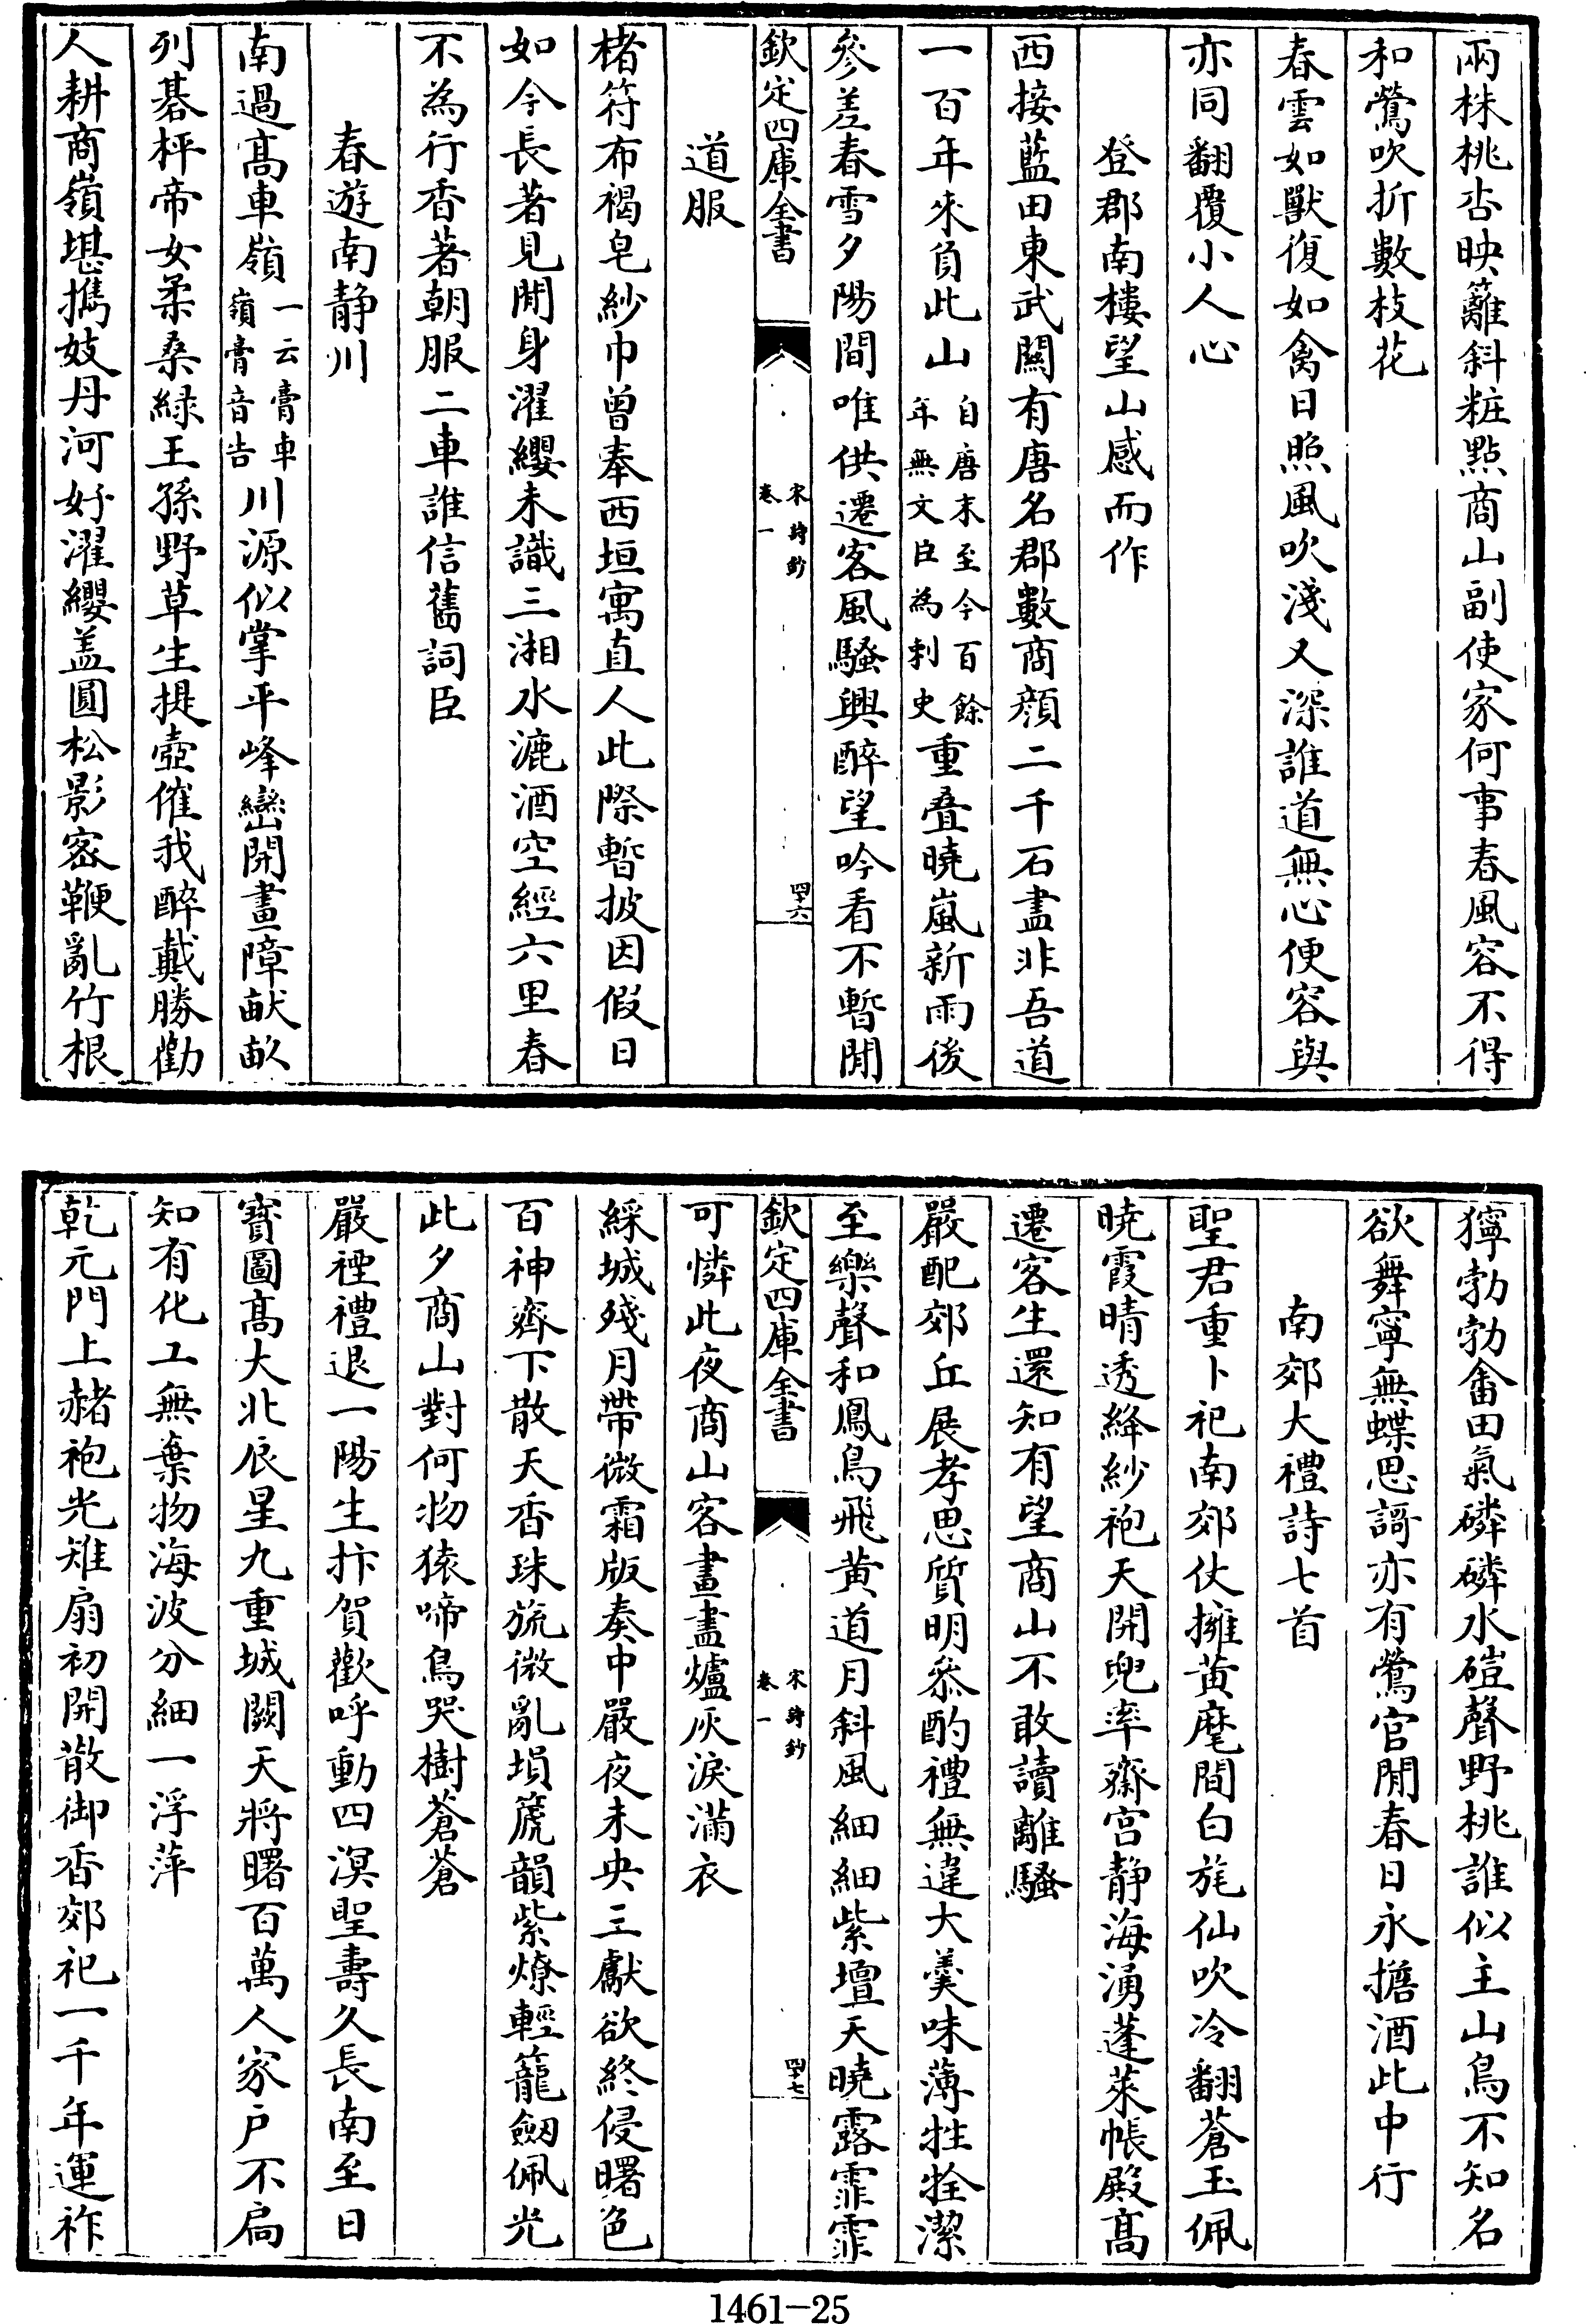 兩株桃杏映籬斜粧㸃商山副使家何事春風容不得
和鶯吹折數枝花
春雲如獸復如禽日照風吹淺又深誰道無心便容與
亦同翻覆小人心
登郡南樓望山感而作
西接藍田東武闗有唐名郡數商顔二千石盡非吾道
一百年來負此山自唐末至今百餘年無文臣為刺史重疊曉嵐新雨後
參差春雪夕陽間唯供遷客風騷興醉望吟看不暫閒
欽定四庫全書
宋詩鈔
卷一
四十六
道服
楮符布褐皂紗巾曾奉西垣寓直人此際暫披因假日
如今長著見閒身濯纓未識三湘水漉酒空經六里春
不為行香著朝服二車誰信舊詞臣
春遊南静川
南過髙車嶺一云膏車嶺膏音告川源似掌平峰巒開畫障畎畝
列棊枰帝女柔桑緑王孫野草生提壺催我醉戴勝勸
人耕商嶺堪擕妓丹河好濯纓盖圓松影宻鞭亂竹根
獰勃勃畬田氣磷磷水磑聲野桃誰似主山鳥不知名
欲舞寧無蝶思謌亦有鶯官閒春日永擔酒此中行
南郊大禮詩七首
聖君重卜祀南郊仗擁黄麾間白旄仙吹冷翻蒼玉佩
曉霞晴透絳紗袍天開兜率齋宫静海湧蓬萊帳殿髙
遷客生還知有望商山不敢讀離騷
嚴配郊丘展孝思質明㕘酌禮無違大羹味薄牲牷潔
至樂聲和鳳鳥飛黄道月斜風細細紫壇天曉露霏霏
欽定四庫全書
宋詩鈔
卷一
四十七
可憐此夜商山客畫盡爐灰淚滿衣
綵城殘月帶微霜版奏中嚴夜未央三獻欲終侵曙色
百神齊下散天香珠旒微亂塤篪韻紫燎輕籠劔佩光
此夕商山對何物猿啼鳥哭樹蒼蒼
嚴禋禮退一陽生抃賀歡呼動四溟聖壽久長南至日
寳圖髙大北辰星九重城闕天將曙百萬人家户不扃
知有化工無棄物海波分細一浮萍
乾元門上赭袍光雉扇初開散御香郊祀一千年運祚
1461—25